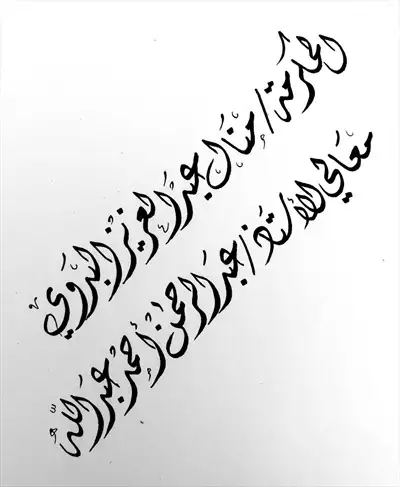 المكرمة / منال عبد العزيز البدوي
معالي الأستاذ / عبد الرحمن أحمد عبد الله